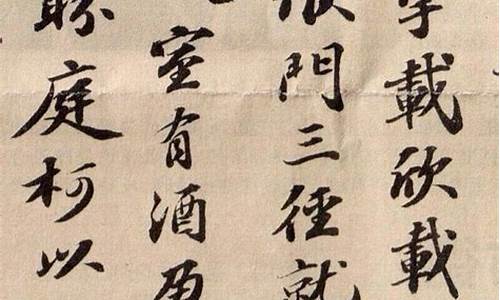 宇載欣載
候門三徑就
室有酒盈
盼庭柯以